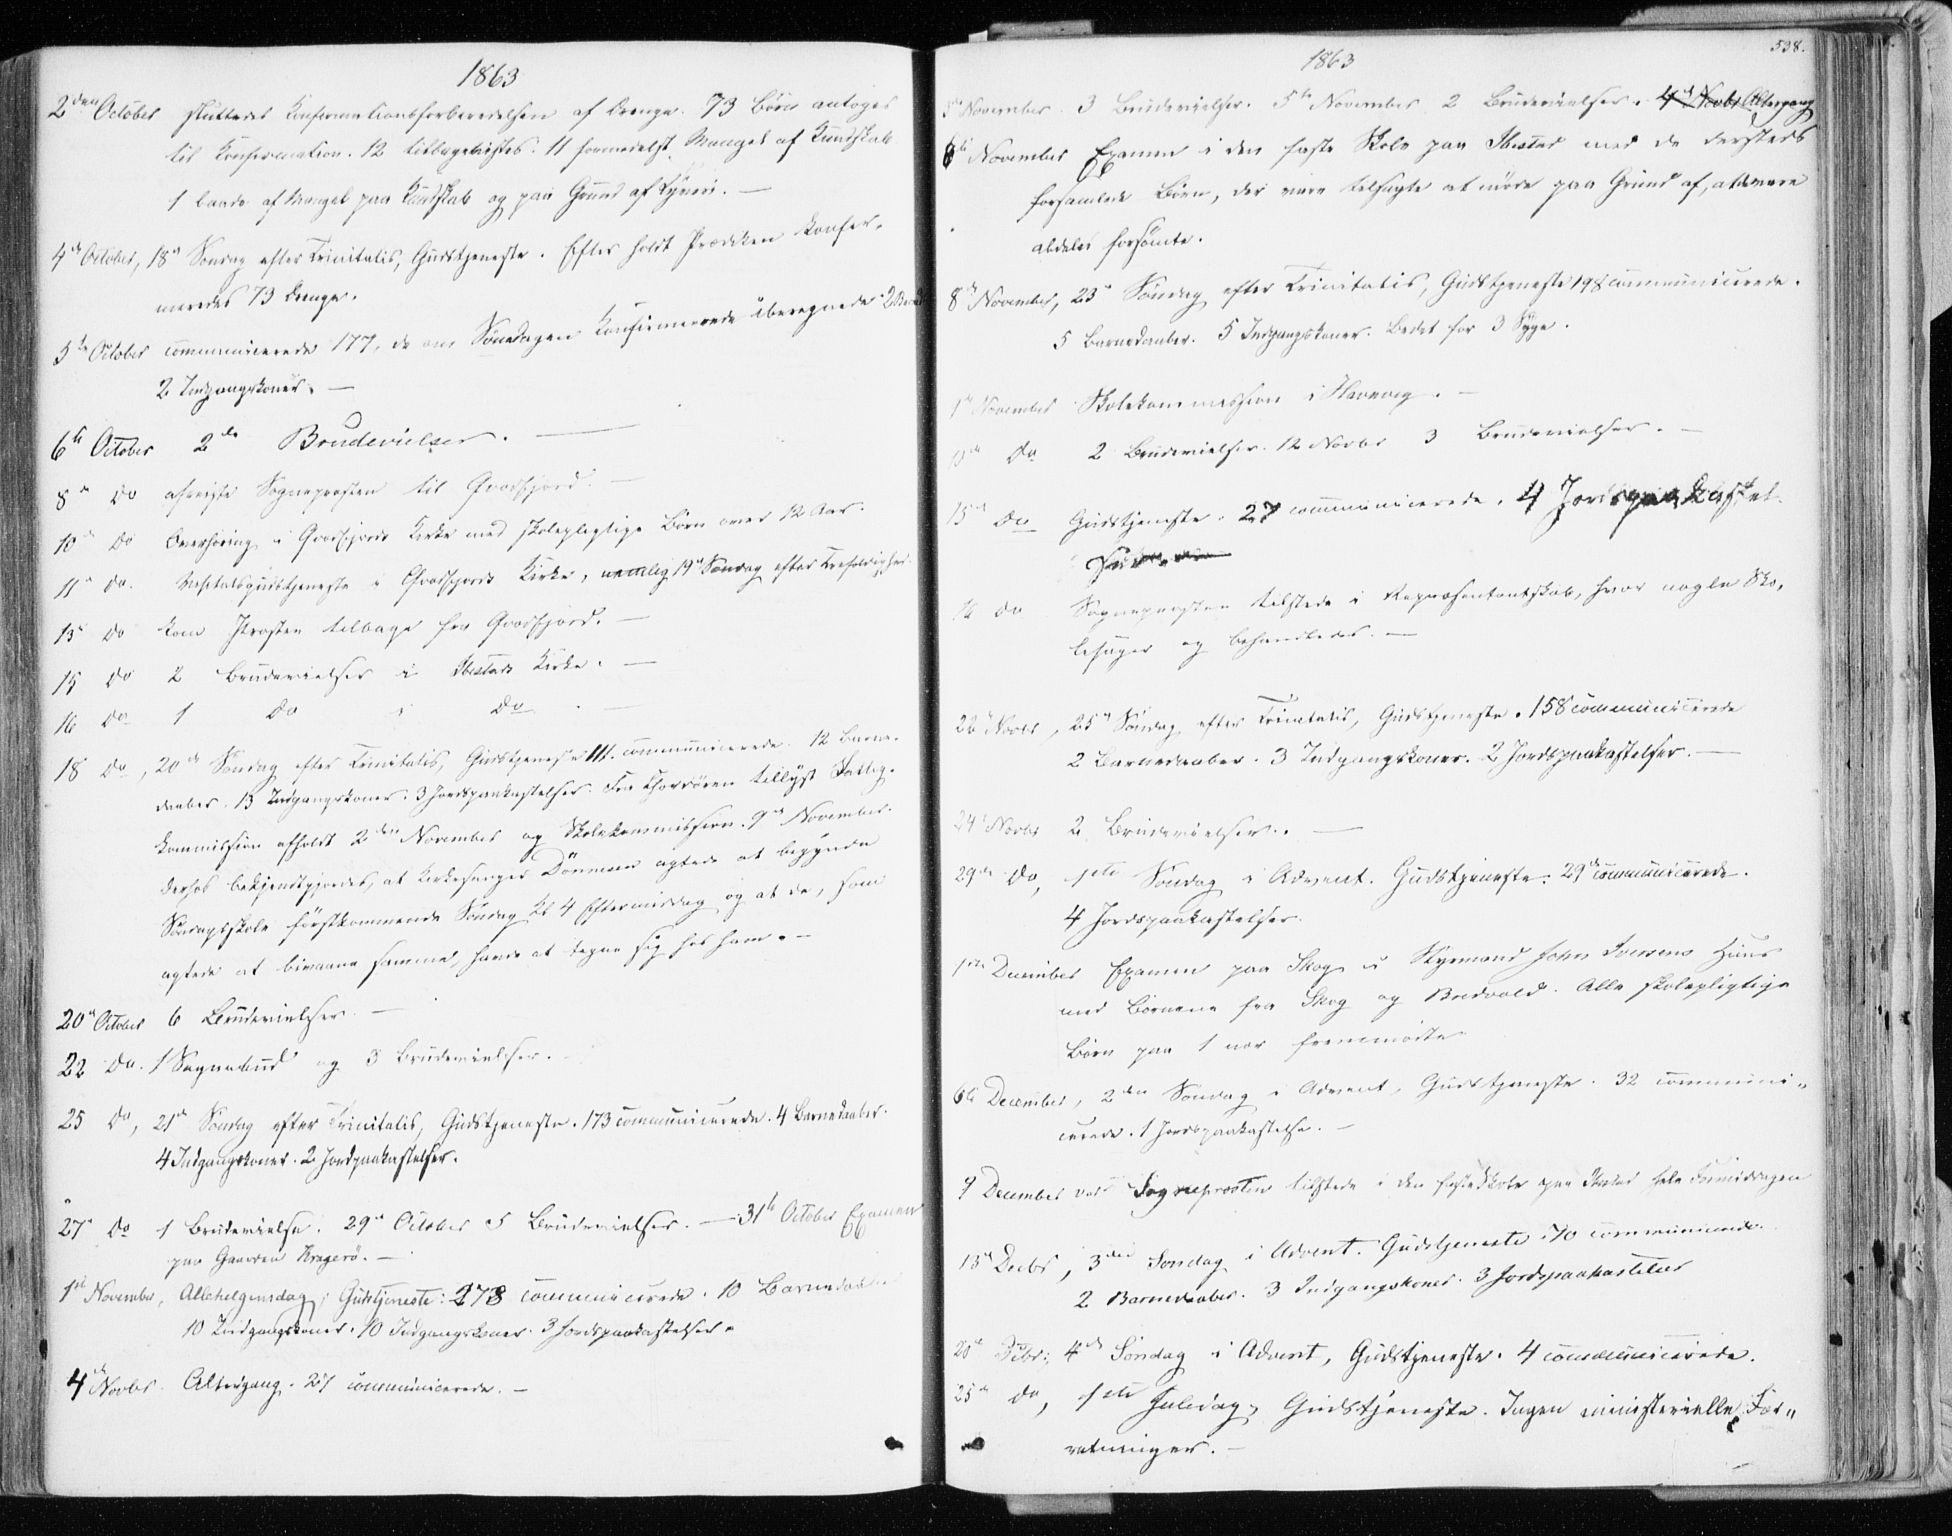 1863
2den October sluttedes Confirmationsforberedelsen af Drenge. 73 Børn antoges
til Confirmation. 12 tilbageviistes. 11 formedelst Mangel af Kundskab
1 baade af Mangel paa Kundskab og paa Grund af
4de October, 18de Søndag efter Trinitatis, Gudstjeneste. Efter holdt Prædiken Confir-
meredes 73 Drenge.
5te October communicerede 177, de om Søndagen Konfirmerede iberegnede
2 Indgangskoner. —
6te October 2de Brudevielser. —
8de do afreiste Sognepresten til Gravfjord. —
10de do Overhøring i Gravfjords Kirke med skolepligtige Børn over 12 Aar.
11te do. Gudstjeneste i Gravfjords Kirke, nemlig 19de Søndag efter
13de do kom Presten tilbage fra Gravfjord. —
15 do 2 Brudevielser i Ibestads Kirke. —
16 do 1 do i do. —
18 do, 20de Søndag efter Trinitatis, Gudstjeneste 111 communicerede. 12 Barne-
daaber. 13 Indgangskoner. 3 Jordspaakastelser. Fra Chordøren tillyst Fattig-
kommission afholdt 2den November og Skolekommission 9de November.
derhos bekjendtgjordes, at Kirkesanger Dönnum agtede at begynde
Søndagsskole førstkommende Søndag Kl 4 Eftermiddag og at de, som
agtede at bivaane samme, havde at tegne sig hos ham. —
20de October 6 Brudevielser. —
22 do. 1 Sognebud og 3 Brudevielser. —
25 do, 21de Søndag efter Trinitatis, Gudstjeneste. 173 communicerede. 4 Barnedaaber.
4 Indgangskoner. 2 Jordpaakastelser.
27de do 1 Brudevielse. 29de October 5 Brudevielser. — 31te October Examen
paa Gaarden Krageró. —
1ste November, Allehelgensdag, Gudstjeneste: 278 communicerede. 10 Barnedaaber
10 Indgangskoner. 10 Indgangskoner. 3 Jordspaakastelser.
4de Novbr. Altergang. 27 communicerede. —
1863
538.
3de November 3 Brudevielser. 5te November 2 Brudevielser. 4de Novbr Altergang
6te November Examen i den faste Skole paa Ibestad med de dersteds
forsamlede Børn, der vare tilsagte at møde paa Grund af, at de vare
aldeles forsømte.
8de November, 23de Søndag efter Trinitatis, Gudstjeneste 198 communicerede.
5 Barnedaaber. 5 Indgangskoner. Bedet for 3 Syge.
November Skolekommission i Havnvig. —
do 2 Brudevielser. 12 Novbr 3 Brudevielser. —
15de do Gudstjeneste. 27 communicerede. 4 Jordspaakastel-
16 do Sognepresten tilstede i Repræsentantskab, hvor nogle Sko-
lesager og behandledes. —
22de Novbr, 25de Søndag efter Trinitatis, Gudstjeneste. 158 communicerede
2 Barnedaaber. 3 Indgangskoner. 2 Jordspaakastelser. —
24de Novbr 2 Brudevielser. —
29de do, 1ste Søndag i Advent. Gudstjeneste. 29de communicerede.
4 Jordspaakastelser.
1ste December Examen paa Skog i Styrmand John Iversens Huus
med Børnene fra Skog og Bredvold. Alle skolepligtige
Børn paa 1 nær fremmødte
6te December, 2den Søndag i Advent, Gudstjeneste. 32 communi-
cerede. 1 Jordspaakastelse. —
9 December var Sognepresten tilstede i den faste Skole paa Ibestad hele Formiddagen
13de Decbr, 3die Søndag i Advent. Gudstjeneste 70 communicerede.
2 Barnedaaber. 3 Indgangskoner. 3 Jordspaakastelser
20de 4de Søndag i Advent, Gudstjeneste. 4 communicerede.
25de do, 1ste Juledag, Gudstjeneste. Ingen ministerielle For-
retninger. —